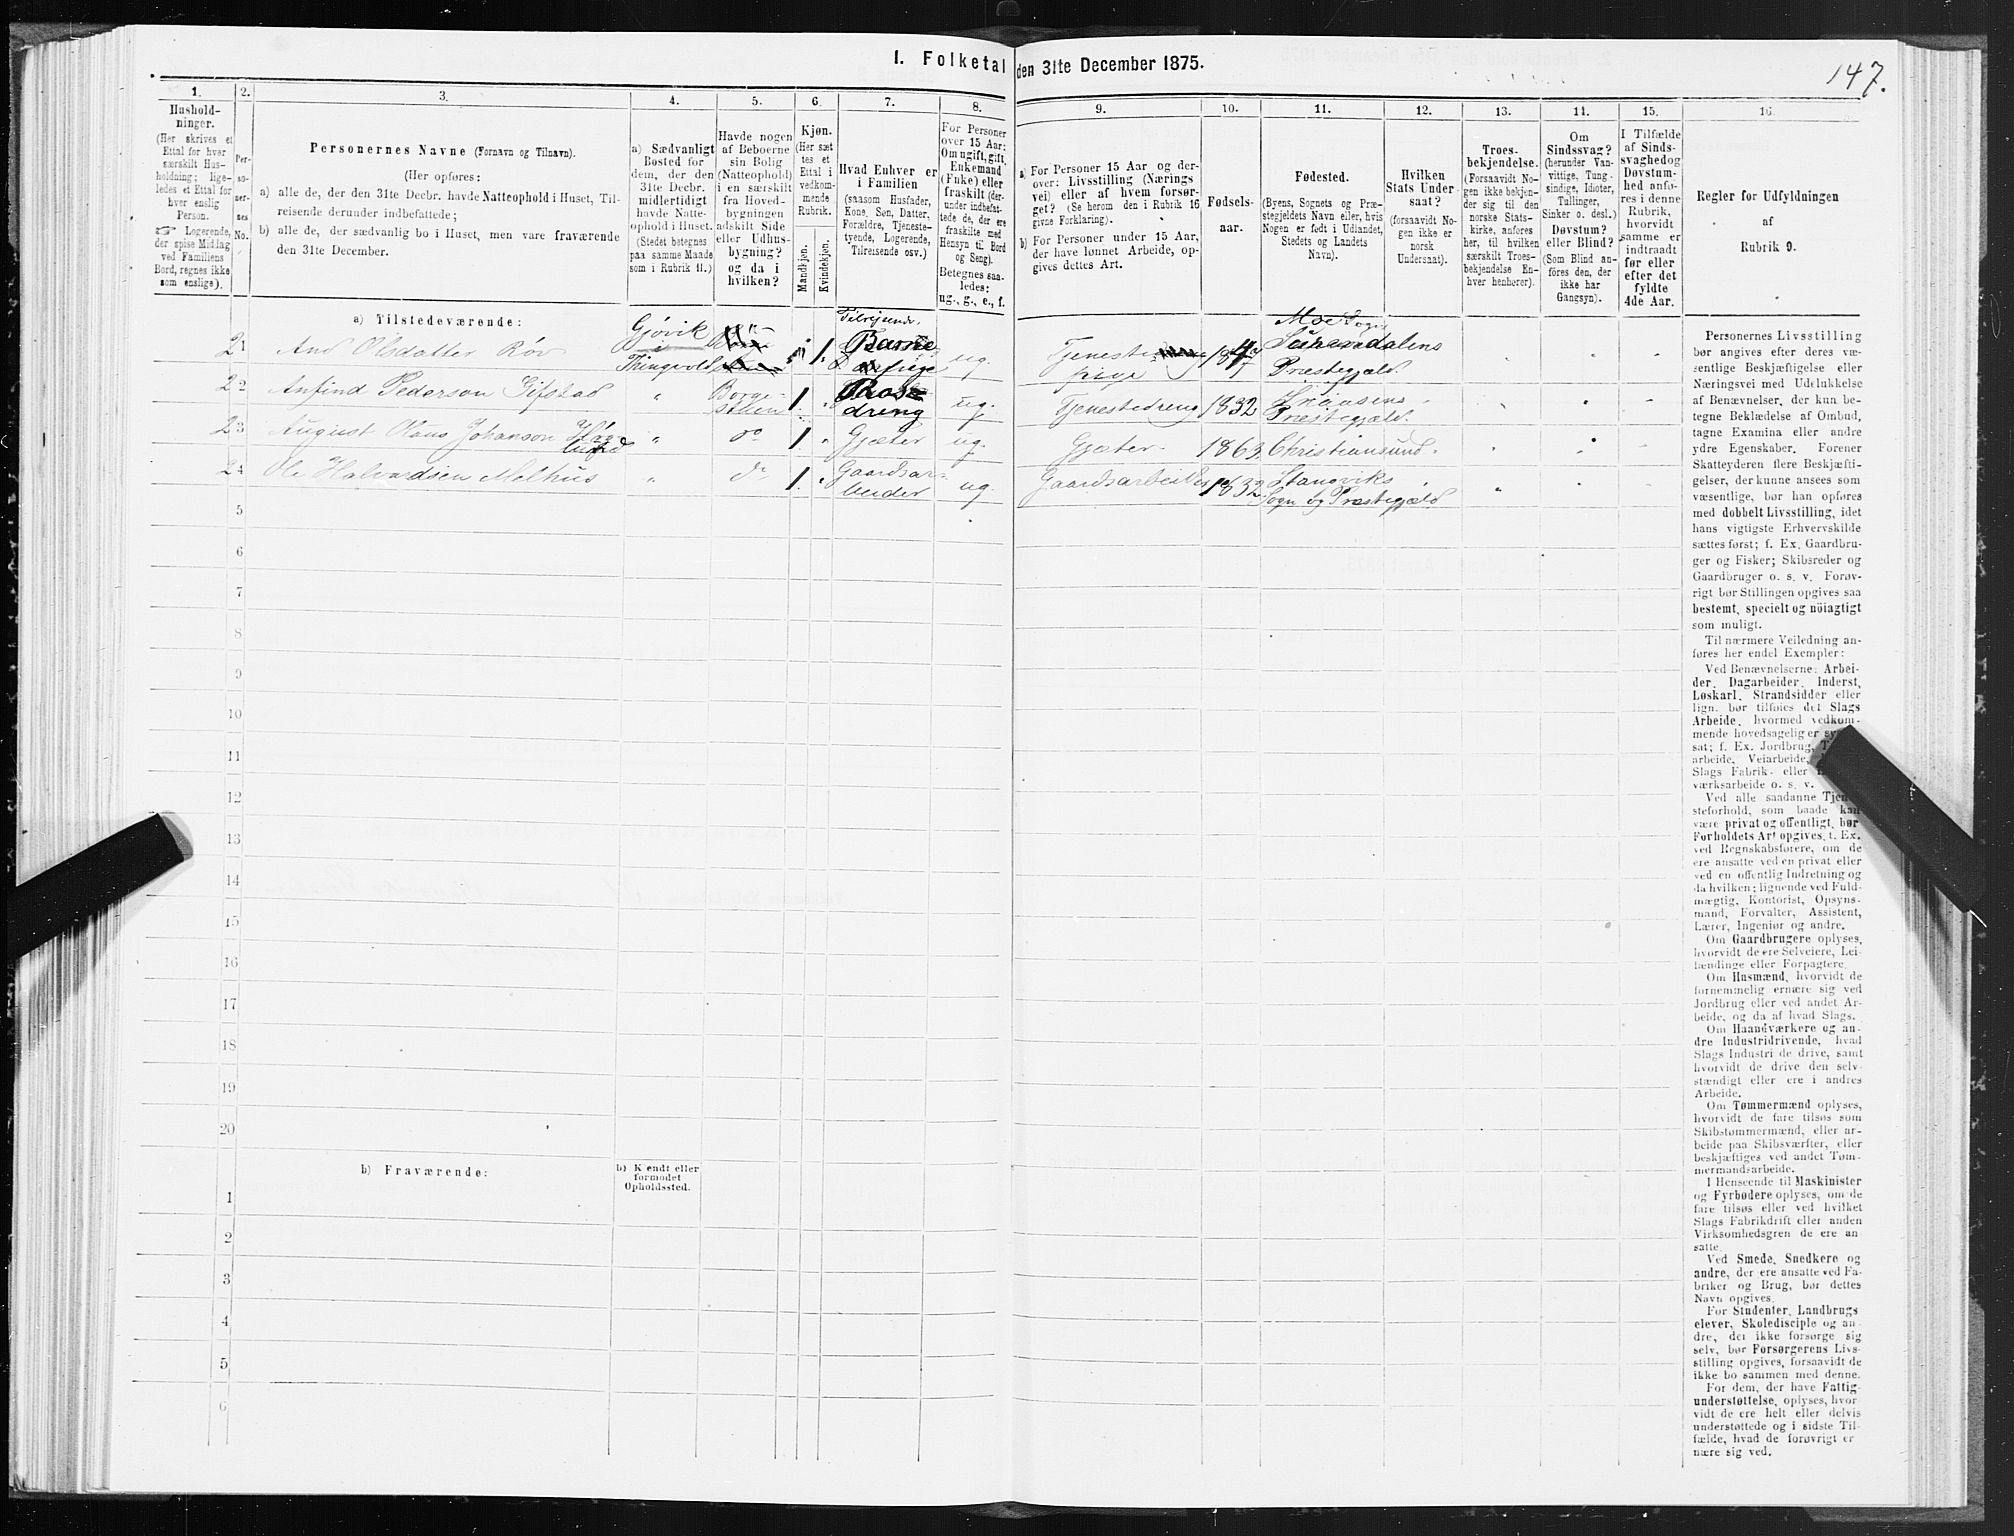 147.
I. Folketal den 31te December 1875.
1.
Hushold-
ninger.
(Her skrives et
Ettal for hver
særskilt Hus-
holdning; lige-
ledes et Ettal for
hver enslig
Person.
☞ Logerende,
der spise Middag
ved Familiens
Bord, regnes ikke
som enslige).
2.
Per-
so-
ner-
nes
No.
3.
Personernes Navne (Fornavn og Tilnavn).
(Her opføres:
a) alle de, der den 31te Decbr. havde Natteophold i Huset, Til-
reisende derunder indbefattede;
b) alle de, der sædvanlig bo i Huset, men vare fraværende
den 31te December.
4.
a) Sædvanligt
Bosted for
dem, der den
31te Decbr.
midlertidigt
havde Natte-
ophold i Huset.
(Stedet betegnes
paa samme Maade
som i Rubrik 11.)
5.
Havde nogen
af Beboerne
sin Bolig
(Natteophold)
i en særskilt
fra Hoved-
bygningen
adskilt Side
eller Udhus-
bygning?
og da i
hvilken?
6.
Kjøn.
(Her sæt
tes et
Ettal i
vedkom-
mende
Rubrik.
Mandkjøn.
Kvindekjøn.
7.
Hvad Enhver er
i Familien
(saasom Husfader,
Kone, Søn, Datter,
Forældre, Tjeneste-
tyende, Logerende,
Tilreisende osv.)
8.
For Personer
over 15 Aar:
Om ugift, gift,
Enkemand
(Enke) eller
fraskilt (der-
under indbefat-
tede de, der ere
fraskilte med
Hensyn til Bord
og Seng).
Betegnes saa-
ledes:
ug., g., e., f.
9.
a) For Personer 15 Aar og der-
over: Livsstilling (Nærings
vei) eller af hvem forsør-
get? (Se herom den i Rubrik 16
givne Forklaring).
b) For Personer under 15 Aar,
der have lønnet Arbeide, op-
gives dettes Art.
10.
Fødsels-
aar.
11.
Fødested.
(Byens, Sognets og Præ-
stegjeldets Navn eller, hvis
Nogen er født i Udlandet,
Stedets og Landets
Navn).
12.
Hvilken
Stats Under-
saat?
(forsaavidt No-
gen ikke er
norsk
Undersaat).
13.
Troes-
bekjendelse.
(Forsaavidt No-
gen ikke bekjen-
der sig til den
norske Stats-
kirke, anføres
her, til hvilken
særskilt Troes-
bekjendelse En-
hver henhører).
11.
Om
Sindssvag?
(herunder Van-
vittige, Tung-
sindige, Idioter,
Tullinger,
Sinker o. desl.)
Døvstum?
eller Blind?
(Som Blind an-
føres den, der
ikke har
Gangsyn).
15.
I Tilfælde
af Sinds-
svaghed og
Døvstum-
hed anfø-
res i denne
Rubrik,
hvorvidt
samme er
indtraadt
før eller
efter det
fyldte
4de Aar.
16.
Regler for Udfyldningen
af
Rubrik 9.
a) Tilstedeværende:
21 Olsdatter Röv Gjövik Thingvold 1 Tilreisende ug. Tjeneste pige Moe Sogn Præstegjæld
22 Anfind Pederson Gifstad " Borge- stuen 1 " dreng ug. Tjenestedreng 1832 Præstegjæld.
23 August Olaus Johanson " do 1 " Gjæter ug. Gjæter 1863 Christiansund
24 Ole Halvordsen Melhus " do 1 " Gaardsar- beider ug. Gaardsarbeider 1832 Stangviks Sogn og Præstegjæld
5
6
7
8
9
10
11
12
13
14
15
16
17
18
19
20
b) Fraværende:
b) Kendt eller
formodet
Opholdssted.
1
2
3
4
5
6
Personernes Livsstilling
bør angives efter deres væ-
sentlige Beskjæftigelse eller
Næringsvei med Udelukkelse
af Benævnelser, der kun be-
tegne Beklædelse af Ombud,
tagne Examina eller andre
ydre Egenskaber. Forener
Skatteyderen flere Beskjæfti-
gelser, der kunne ansees som
væsentlige, bør han opføres
med dobbelt Livsstilling, idet
hans vigtigste Erhvervskilde
sættes først; f. Ex. Gaardbru-
ger og Fisker; Skibsreder og
Gaardbruger o. s. v. Forøv-
rigt bør Stillingen opgives saa
bestemt, specielt og nöiagtigt
som muligt.
Til nærmere Veiledning an-
føres her endel Exempler:
Ved Benævnelserne: Arbei-
der, Dagarbeider, Inderst,
Løskarl, Strandsidder eller
lign. bør tilføies det Slags
Arbeide, hvormed vedkom-
mende hovedsagelig er
sat; f. Ex. Jordbrug,
arbeide, Veiarbeide,
Slags Fabrik- eller
værksarbeide o. s. v.
Ved alle saadanne Tjene-
steforhold, som baade kan
være privat og offentligt, bør
Forholdets Art opgives, t. Ex.
ved Regnskabsførere, om de
ere ansatte ved en privat eller
ved en offentlig Indretning og
da hvilken; lignende ved Fuld-
mægtig, Kontorist, Opsyns-
mand, Forvalter, Assistent,
Lærer, Ingeniør og andre.
Om Gaardbrugere oplyses,
hvorvidt de ere Selveiere, Lei-
lændinge eller Forpagtere.
Om Husmænd, hvorvidt de
fornemmelig ernære sig ved
Jordbrug eller ved andet Ar-
beide, og da af hvad Slags.
Om Haandværkere og an-
dre Industridrivende, hvad
Slags Industri de drive, samt
hvorvidt de drive den selv-
stændigt eller ere i andres
Arbeide.
Om Tømmermænd oplyses,
hvorvidt de fare tilsøs som
Skibstømmermænd, eller ar-
beide paa Skibsværfter, eller
beskjæftiges ved andet Tøm-
mermandsarbeide.
I Henseende til Maskinister
og Fyrbødere oplyses, om de
fare tilsøs eller ved hvilket
Slags Fabrikdrift eller anden
Virksomhedsgren de ere an
satte.
Ved Smede, Snedkere og
andre, der ere ansatte ved Fa-
briker og Brug, bør dettes
Navn opgives.
For Studenter, Landbrugs
elever, Skoledisciple og an-
dre, der ikke forsørge sig
selv, bør Forsørgerens Livs-
stilling opgives, forsaavidt de
ikke bo sammen med denne.
For dem, der have Fattig-
understøttelse, oplyses, hvor-
vidt de ere helt eller delvis
understøttede og i sidste Til-
fælde, hvad de forøvrigt er
nære sig ved.